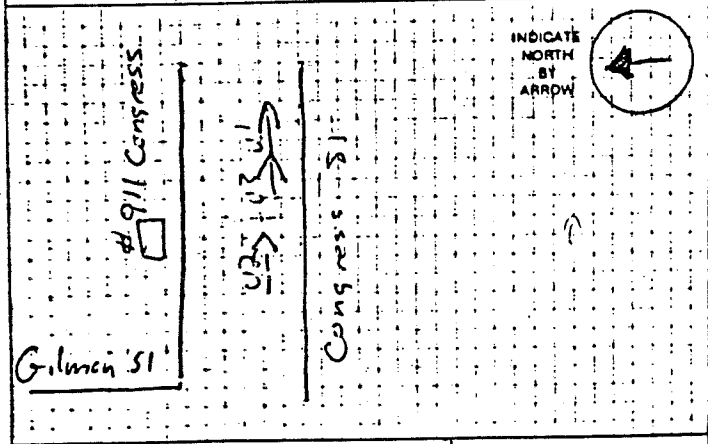 INDICATE
NORTH
BY
ARROW
# 911 Congress
U2
U1
Congress St
Gilman St